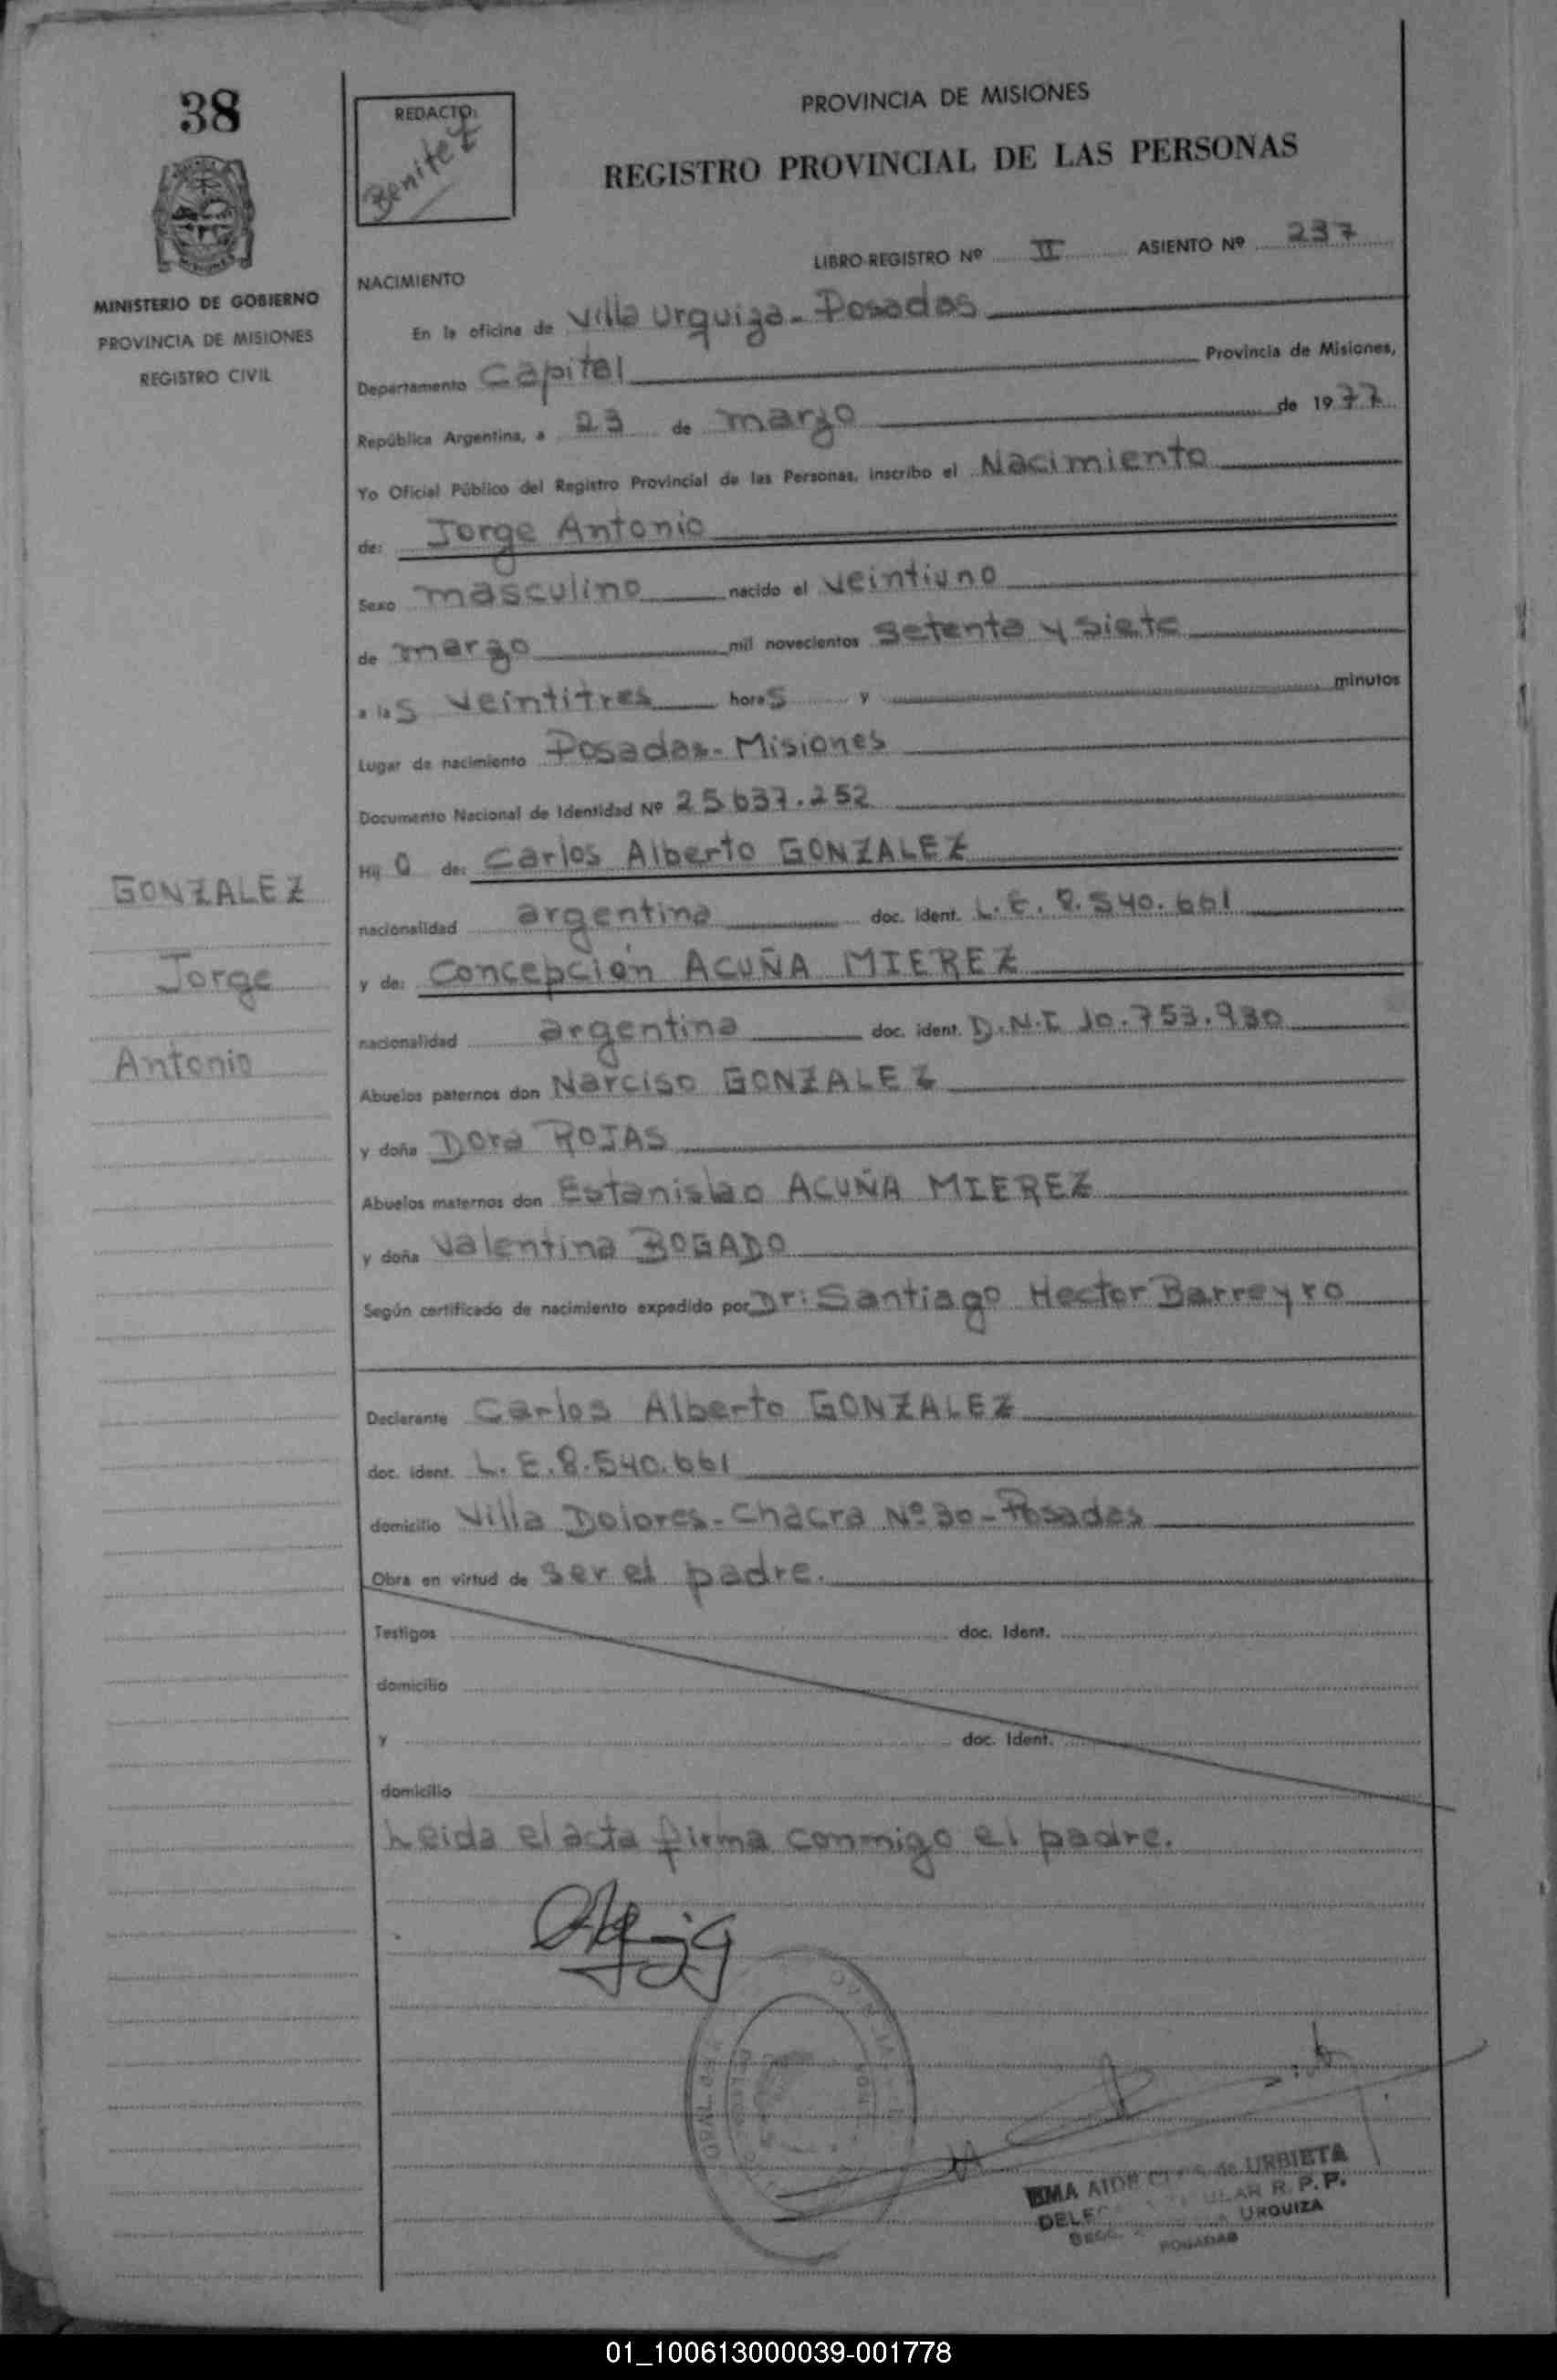 38
MINISTERIO DE GOBIERNO
PROVINCIA DE MISIONES
REGISTRO CIVIL
REDACTO:
Benitez
PROVINCIA DE MISIONES
REGISTRO PROVINCIAL DE LAS PERSONAS
LIBRO REGISTRO Nº II ASIENTO Nº 237
NACIMIENTO
En la oficina de Villa Urquiza - Posadas
Departamento Capital Provincia de Misiones,
República Argentina, a 23 de marzo de 1977
Yo Oficial Público del Registro Provincial de las Personas, inscribo el Nacimiento
de: Jorge Antonio
Sexo masculino nacido el veintiuno
de marzo mil novecientos setenta y siete
a las veintitres horas y minutos
Lugar de nacimiento Posadas - Misiones
Documento Nacional de Identidad Nº 25.637.252
Hijo de: Carlos Alberto GONZALEZ
nacionalidad argentina doc. ident. L.E. 8.540.661
y de: Concepción ACUÑA MIEREZ
nacionalidad argentina doc. ident. D.N.I 10.753.930
Abuelos paternos don Narciso GONZALEZ
y doña Dora ROJAS
Abuelos maternos don Estanislao ACUÑA MIEREZ
y doña Valentina BOGADO
Según certificado de nacimiento expedido por Dr: Santiago Hector Barreyro
GONZALEZ
Jorge
Antonio
Declarante Carlos Alberto GONZALEZ
doc. ident. L.E. 8.540.661
domicilio Villa Dolores - Chacra Nº 30 - Posadas
Obra en virtud de ser el padre.
Testigos doc. Ident.
domicilio
y doc. Ident.
domicilio
Leida el acta firma conmigo el padre.
de URBIETA
R. P. P.
URQUIZA
POSADAS
01_100613000039-001778